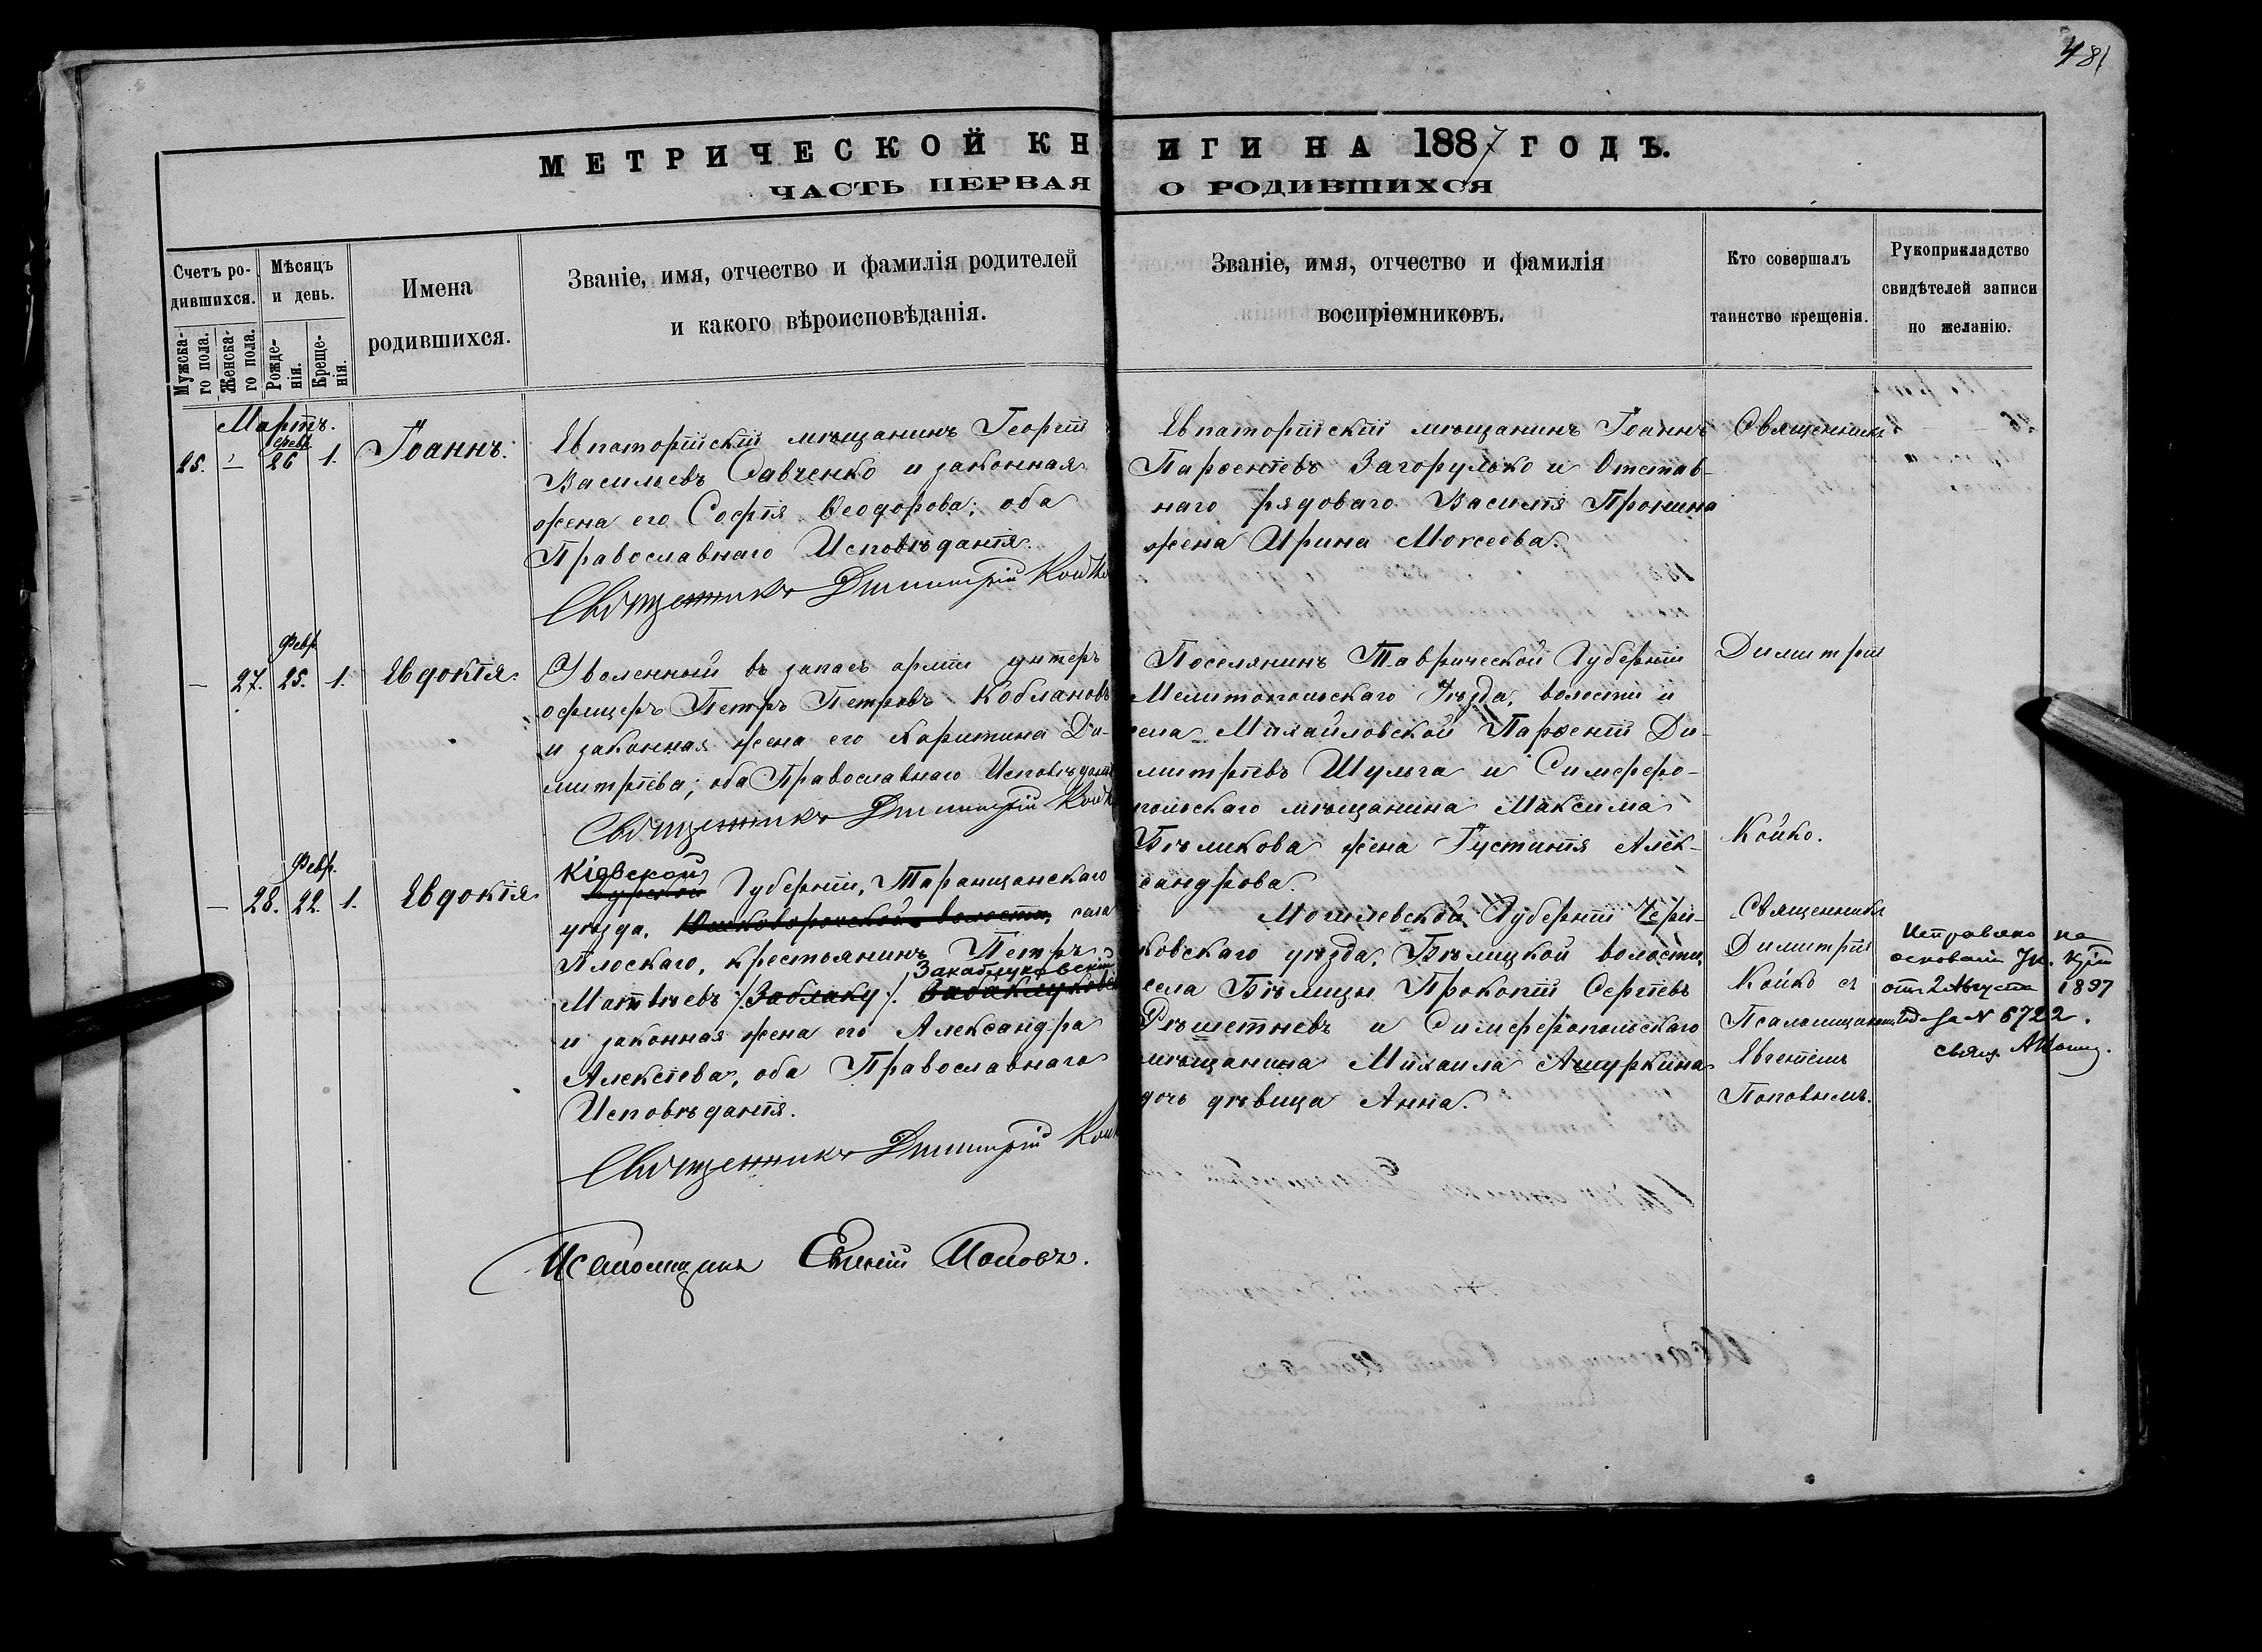 481
МЕТРИЧЕСКОЙ КНИГИ НА 1887 ГОДЪ.
ЧАСТЬ ПЕРВАЯ О РОДИВШИХСЯ
Счетъ ро-
дившихся.
Мужска-
го пола.
Женска-
го пола.
Мѣсяцъ
и день.
Рожде-
нія.
Креще-
нія.
Имена
родившихся.
Званіе, имя, отчество и фамилія родителей
и какого вѣроисповѣданія.
Званіе, имя, отчество и фамилія
воспріемниковъ.
Кто совершалъ
таинство крещенія.
Рукоприкладство
свидѣтелей записи
по желанію.
Мартъ.
Февр
25. — 26 1.
Іоаннъ.
Евпаторійскій мѣщанинъ Георгій
Васильевъ Савченко и законная
жена его Софія Ѳеодорова; оба
Православнаго Исповѣданія.
Священникъ Димитрій Койко
Евпаторійскій мѣщанинъ Іоаннъ
Парѳеніевъ Загорулько и Отстав-
наго рядоваго Василія Пронина
жена Ирина Моисеева.
Священникъ
Февр
— 27. 25. 1.
Евдокія.
Уволенный въ запасъ арміи унтеръ
офицеръ Петръ Петровъ Коблановъ
и законная жена его Харитина Ди-
митріева; оба Православнаго Исповѣданія
Священникъ Димитрій Койко
Поселянинъ Таврической Губерніи
Мелитопольскаго Уѣзда, волости и
села Михайловской Парѳеній Ди-
митріевъ Шульга и Симферо-
польскаго мѣщанина Максима
Бѣликова жена Іустинія Алек-
сандрова.
Димитрій
Койко.
Февр.
— 28. 22. 1.
Евдокія
Кіевской
Губерніи, Таращанскаго
уѣзда, волости, села
Плоскаго, крестьянинъ Петръ
Закаблуковскій
Матвѣевъ /Заблаку/.
и законная жена его Александра
Алексѣева, оба Православнаго
Исповѣданія.
Священникъ Димитрій Койко
Псаломщикъ Евгеній Поповъ.
Могилевской Губерніи Чери-
ковскаго уѣзда, Бѣлицкой волости,
села Бѣлицы Прокопій Сергіевъ
Рѣшетневъ и Симферопольскаго
мѣщанина Михаила Ашуркина
дочь дѣвица Анна.
Священникъ
Димитрій
Койко съ
Псаломщикомъ
Евгеніемъ
Поповымъ.
Исправлено на
основаніи Ук.
отъ 2 Августа 1897
за № 6722.
свящ.